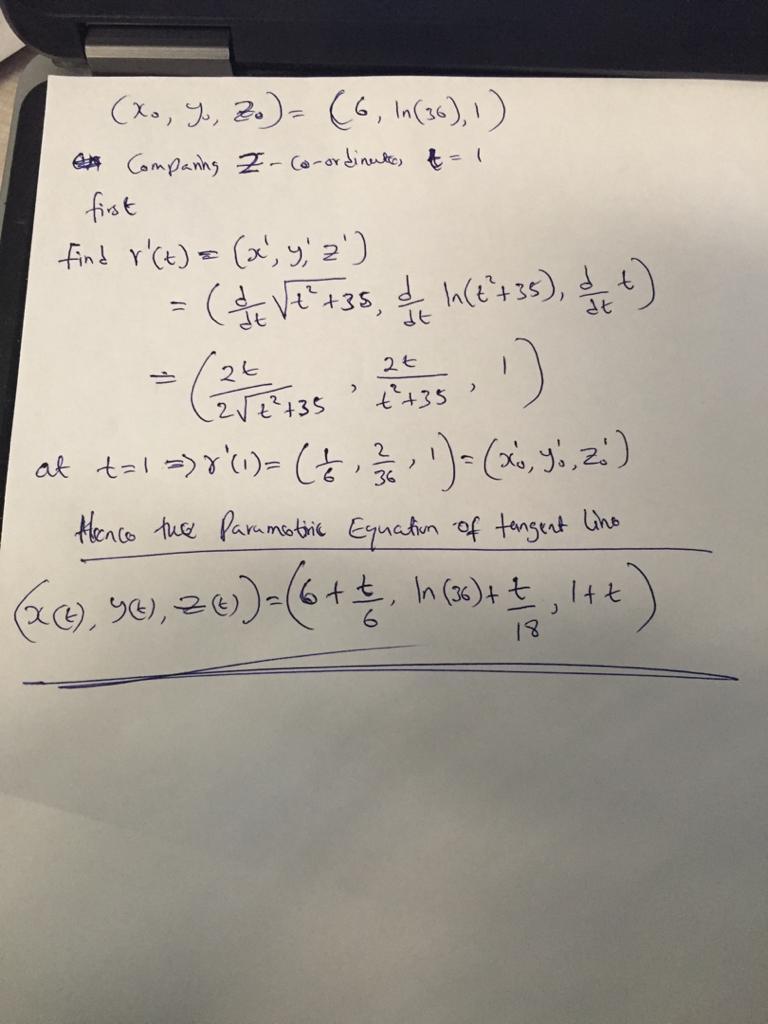 (x₀, y₀, z₀) = (6, ln(36), 1)
Comparing Z-co-ordinates t = 1
first
find r'(t) = (x', y', z')
= (d/dt √(t²+35), d/dt ln(t²+35), d/dt t)
= (2t/(2√(t²+35)), 2t/(t²+35), 1)
at t=1 => r'(1) = (1/6, 2/36, 1) = (x₀', y₀', z₀')
Hence Parametric Equation of tangent line
(x(t), y(t), z(t)) = (6 + t/6, ln(36) + t/18, 1+t)